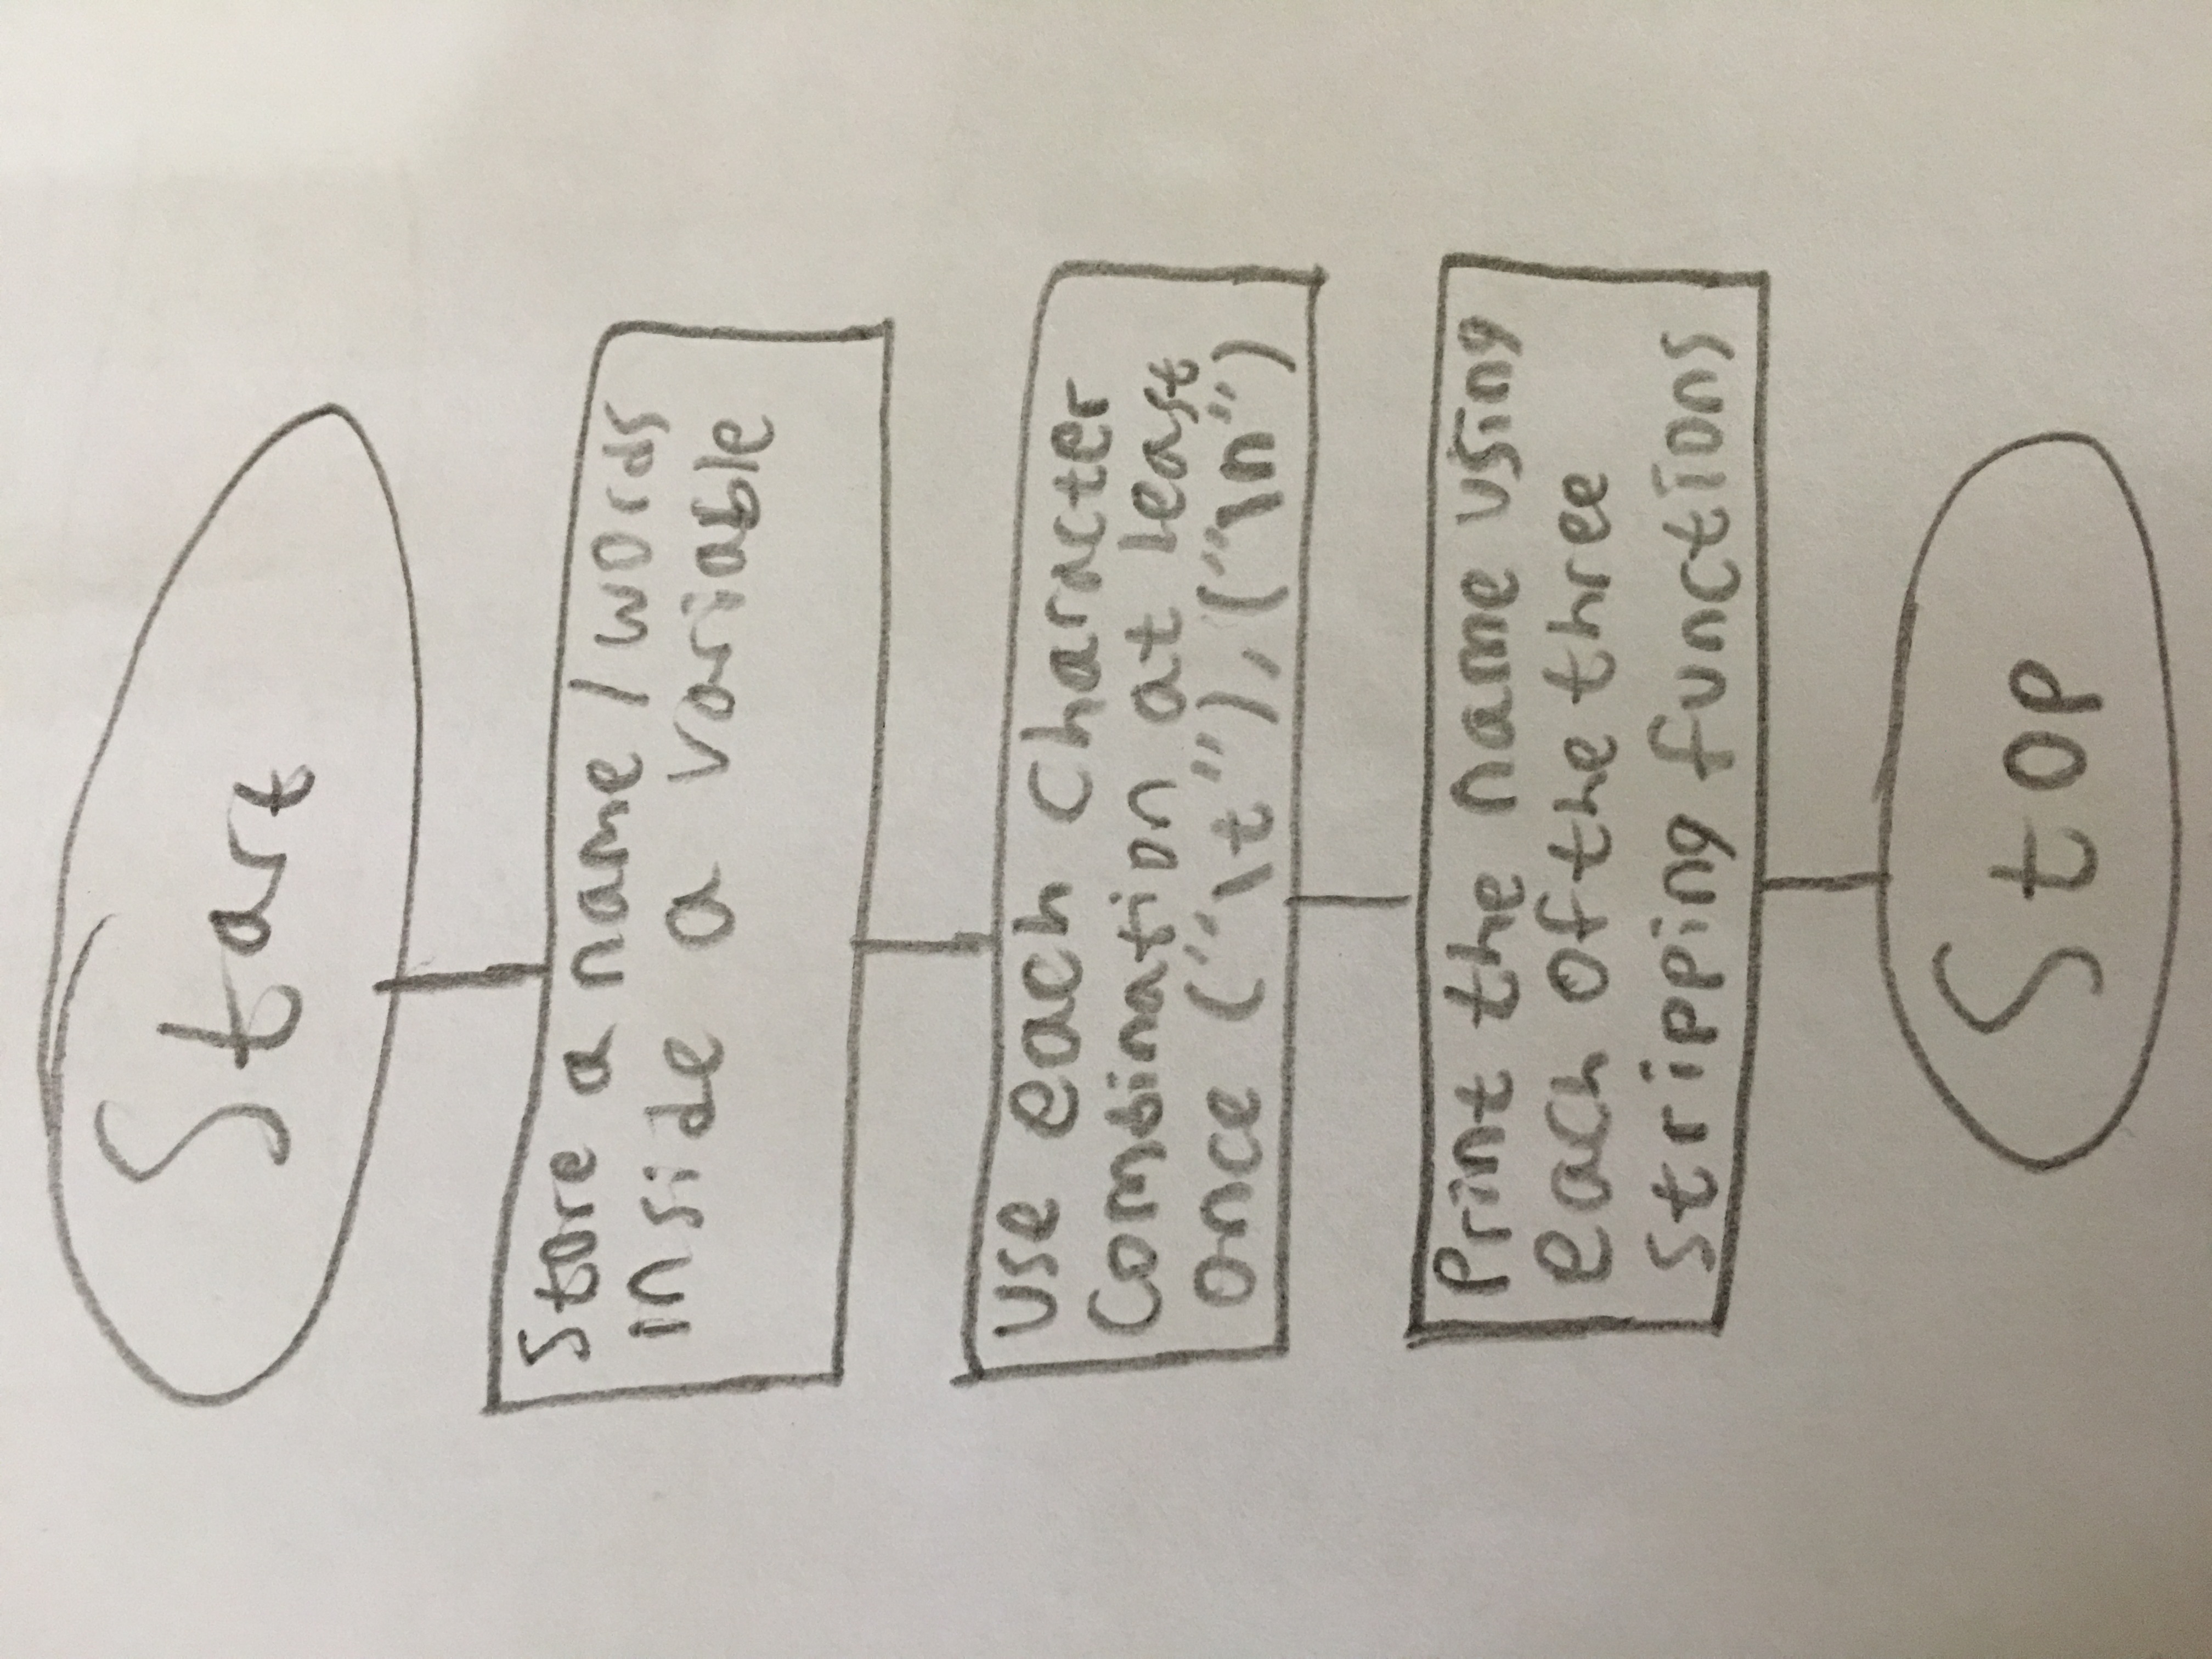 Start
Store a name / words
inside a variable
Use each character
Combination at least
once ("\t"), ("\n")
Print the name using
each of the three
stripping functions
Stop